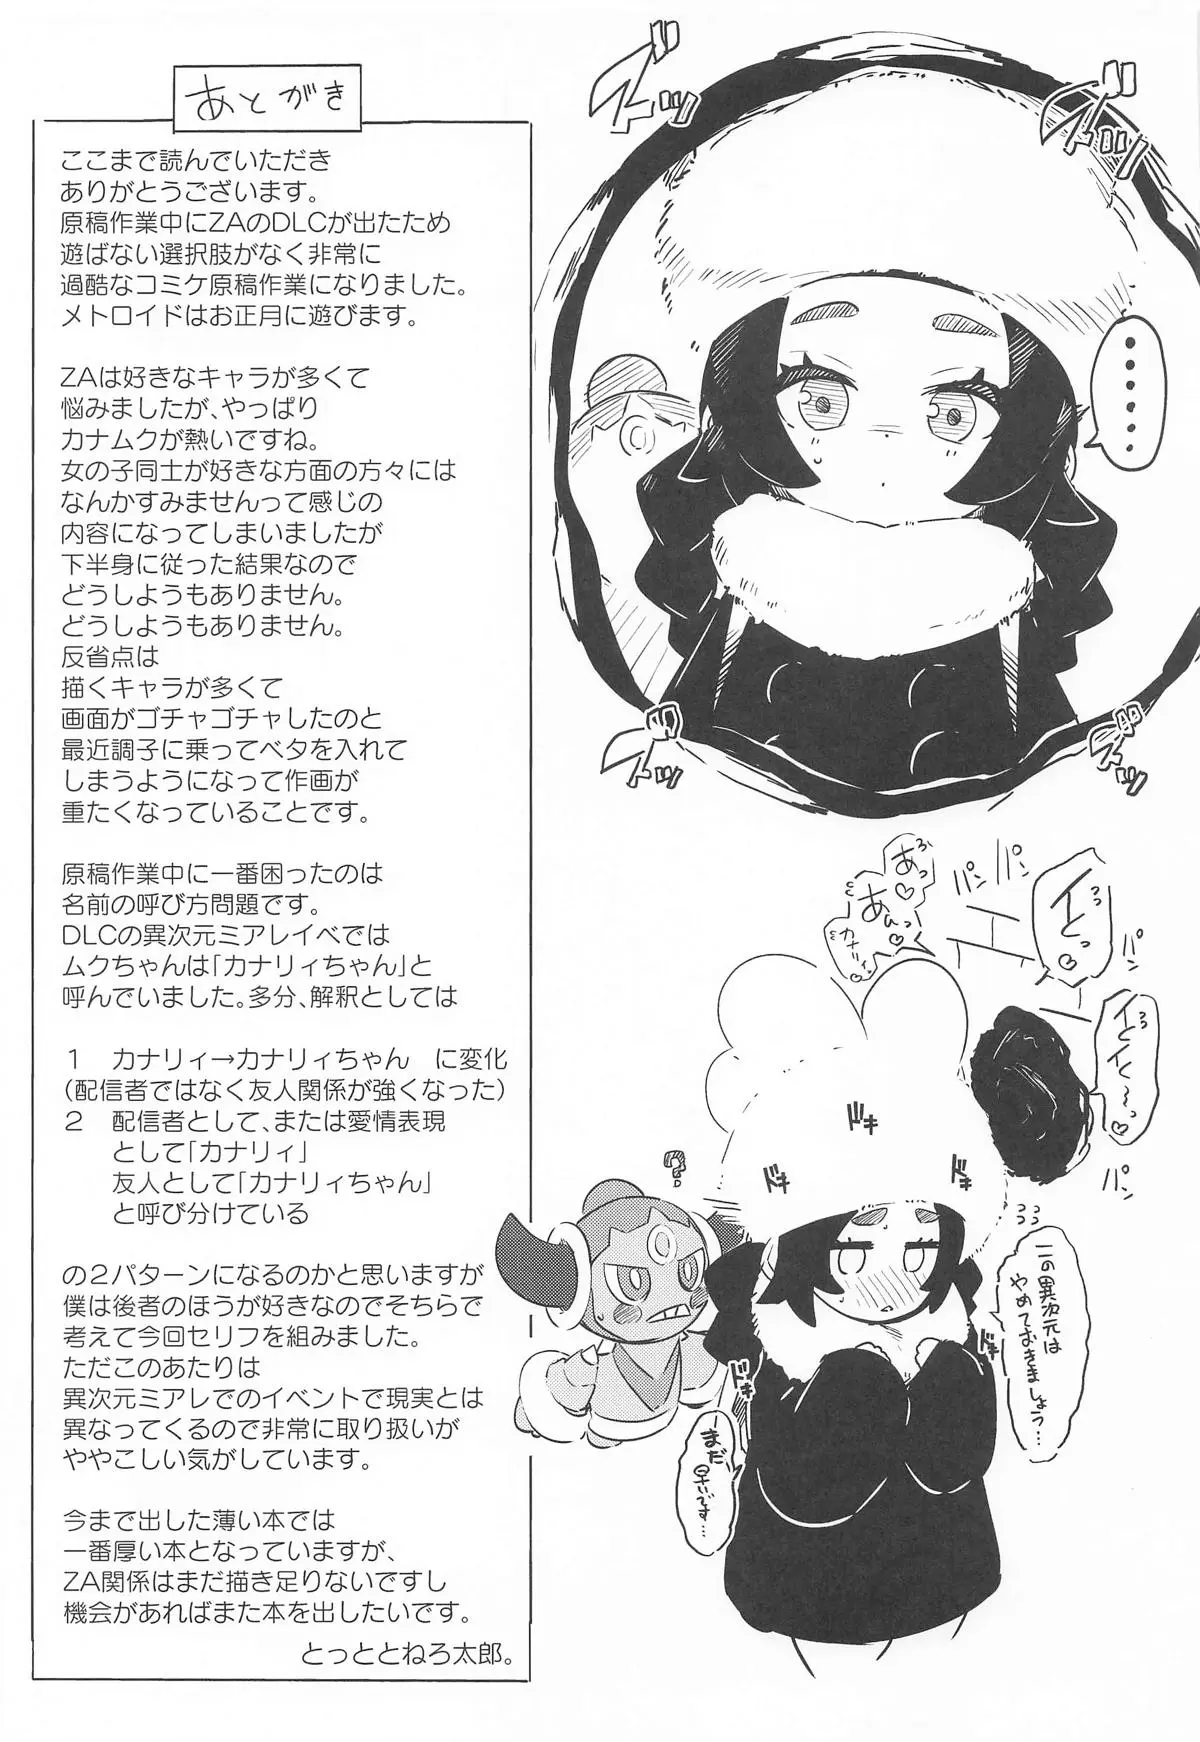 あとがき
ここまで読んでいただき
ありがとうございます。
原稿作業中にZAのDLCが出たため
遊ばない選択肢がなく非常に
過酷なコミケ原稿作業になりました。
メトロイドはお正月に遊びます。
ZAは好きなキャラが多くて
悩みましたが、やっぱり
カナムクが熱いですね。
女の子同士が好きな方面の方々には
なんかすみませんって感じの
内容になってしまいましたが
下半身に従った結果なので
どうしようもありません。
どうしようもありません。
反省点は
描くキャラが多くて
画面がゴチャゴチャしたのと
最近調子に乗ってベタを入れて
しまうようになって作画が
重たくなっていることです。
原稿作業中に一番困ったのは
名前の呼び方問題です。
DLCの異次元ミアレイベでは
ムクちゃんは「カナリィちゃん」と
呼んでいました。多分、解釈としては
1 カナリィ→カナリィちゃん に変化
(配信者ではなく友人関係が強くなった)
2 配信者として、または愛情表現
として「カナリィ」
友人として「カナリィちゃん」
と呼び分けている
の2パターンになるのかと思いますが
僕は後者のほうが好きなのでそちらで
考えて今回セリフを組みました。
ただこのあたりは
異次元ミアレでのイベントで現実とは
異なってくるので非常に取り扱いが
ややこしい気がしています。
今まで出した薄い本では
一番厚い本となっていますが、
ZA関係はまだ描き足りないですし
機会があればまた本を出したいです。
とっととねろ太郎。
ズドッ
ズドッ
ズドッ
ズドッ
……
あっ♡
あんっ♡
カナリィ♡
パンパン
イとっ♡
パン
イとイく〜っ♡
パン
ドキ
ドキ
ドキ
?
この異次元は
やめておきましょう…
ドキ
ドキ
まだ
早いです…